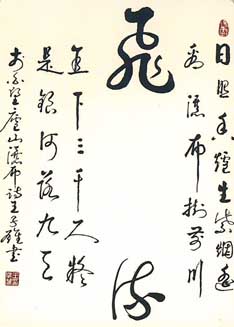 日照香爐生紫烟遥
看瀑布掛前川
飛流
直下三千尺疑
是銀河落九天
李白望廬山瀑布詩 書